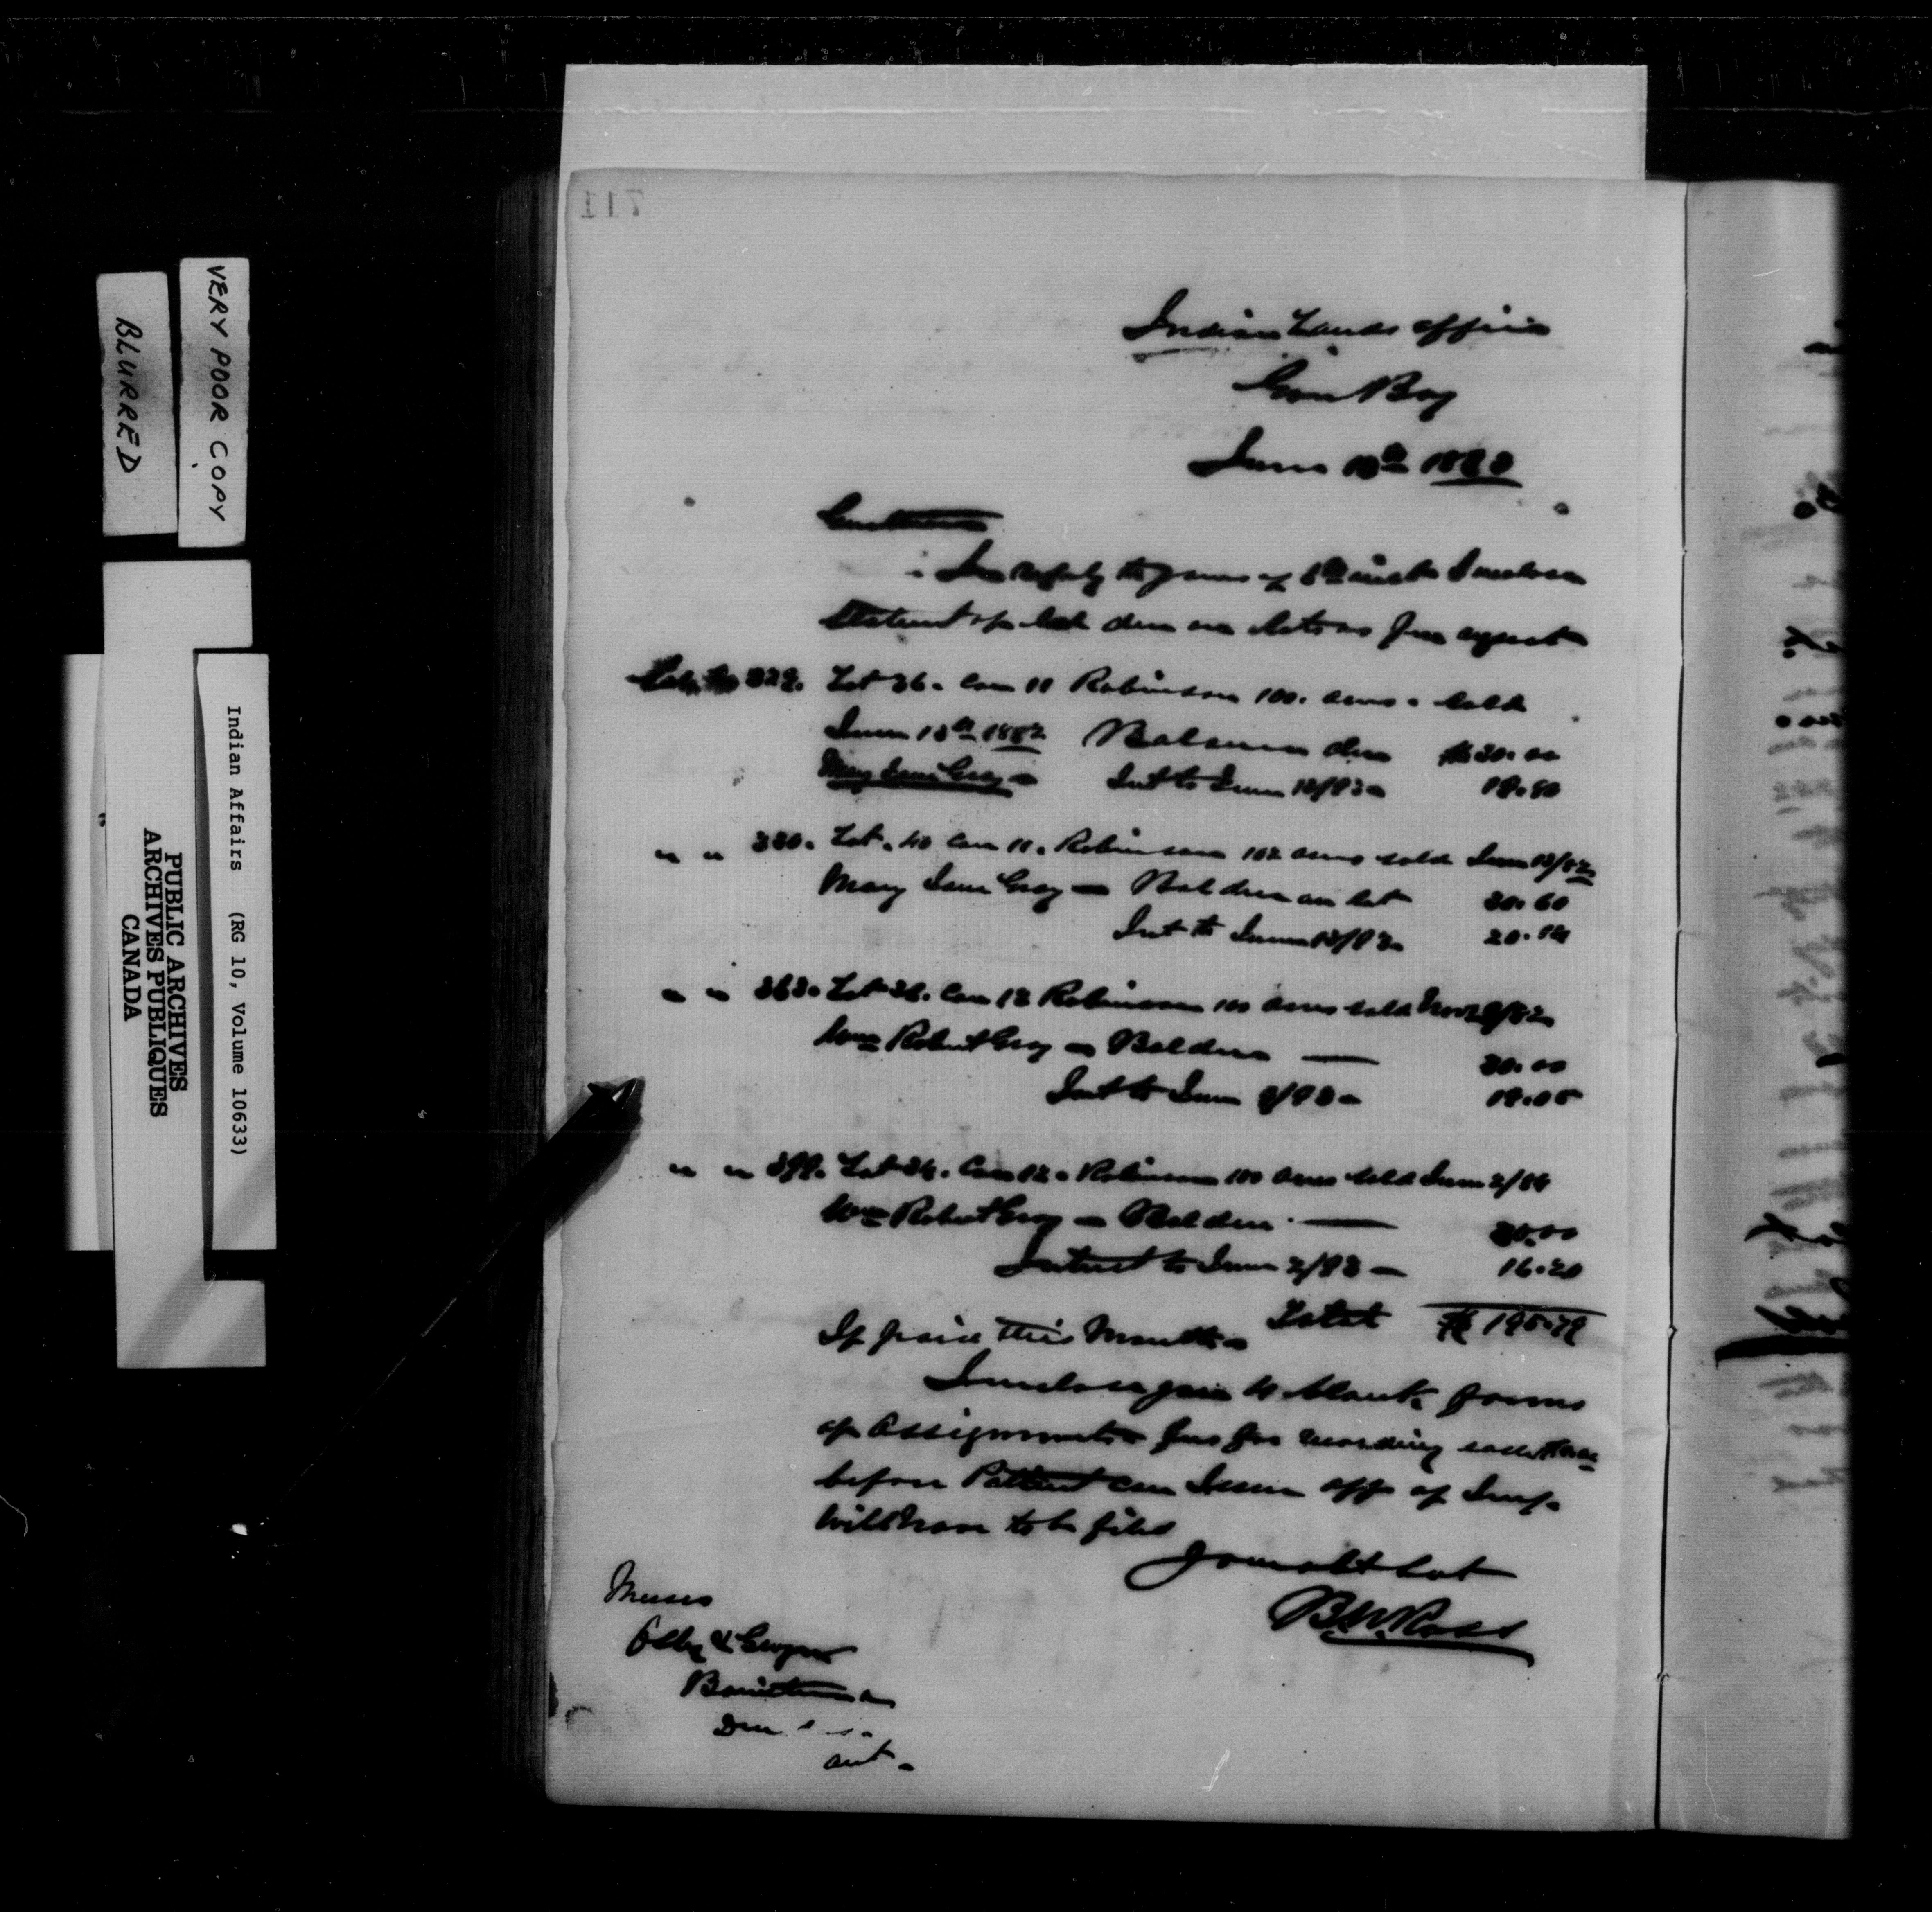 VERY POOR COPY
BLURRED
Indian Affairs (RG 10, Volume 10633)
PUBLIC ARCHIVES
ARCHIVES PUBLIQUES
CANADA
711
Indian Lands Office
Gore Bay
June 13th 1893
Gentlemen
In reply to yours of 8th inst I enclose
Statement of bal due on lots as per agreet
329. Lot 36. Con 11 Robinson 100. acres. sold
June 13th 1882 Balance due $30.00
Mary Jane Gray Int to June 13/93 19.80
" " 330. Lot. 40 Con 11. Robinson 102 acres sold June 13/82
Mary Jane Gray — Bal due on lot 30.60
Int to June 13/93 20.19
" " 363. Lot 36. Con 12 Robinson 100 acres sold Nov 9/82
Wm Robert Gray — Bal due — 30.00
Int to June 9/93 — 19.05
" " 399. Lot 34. Con 12. Robinson 100 acres sold June 2/84
Wm Robert Gray — Bal due — 30.00
Interest to June 2/93 — 16.20
Total $195.79
If paid this Month
I enclose you 4 blank forms
of Assignments fee for recording each
before Patent can Issue aff of Imp.
will have to be filed
Your obt Svt
B.W. Ross
Messrs
Barristers
Ont.